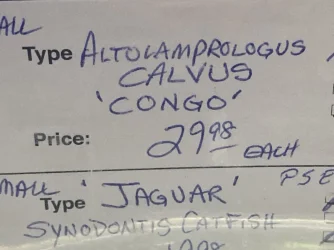 ALL
Type ALTOLAMPROLOGUS
CALVUS
'CONGO'
Price: 29.98 EACH
MALL 'JAGUAR' PSE
Type
SYNODONTIS CATFISH